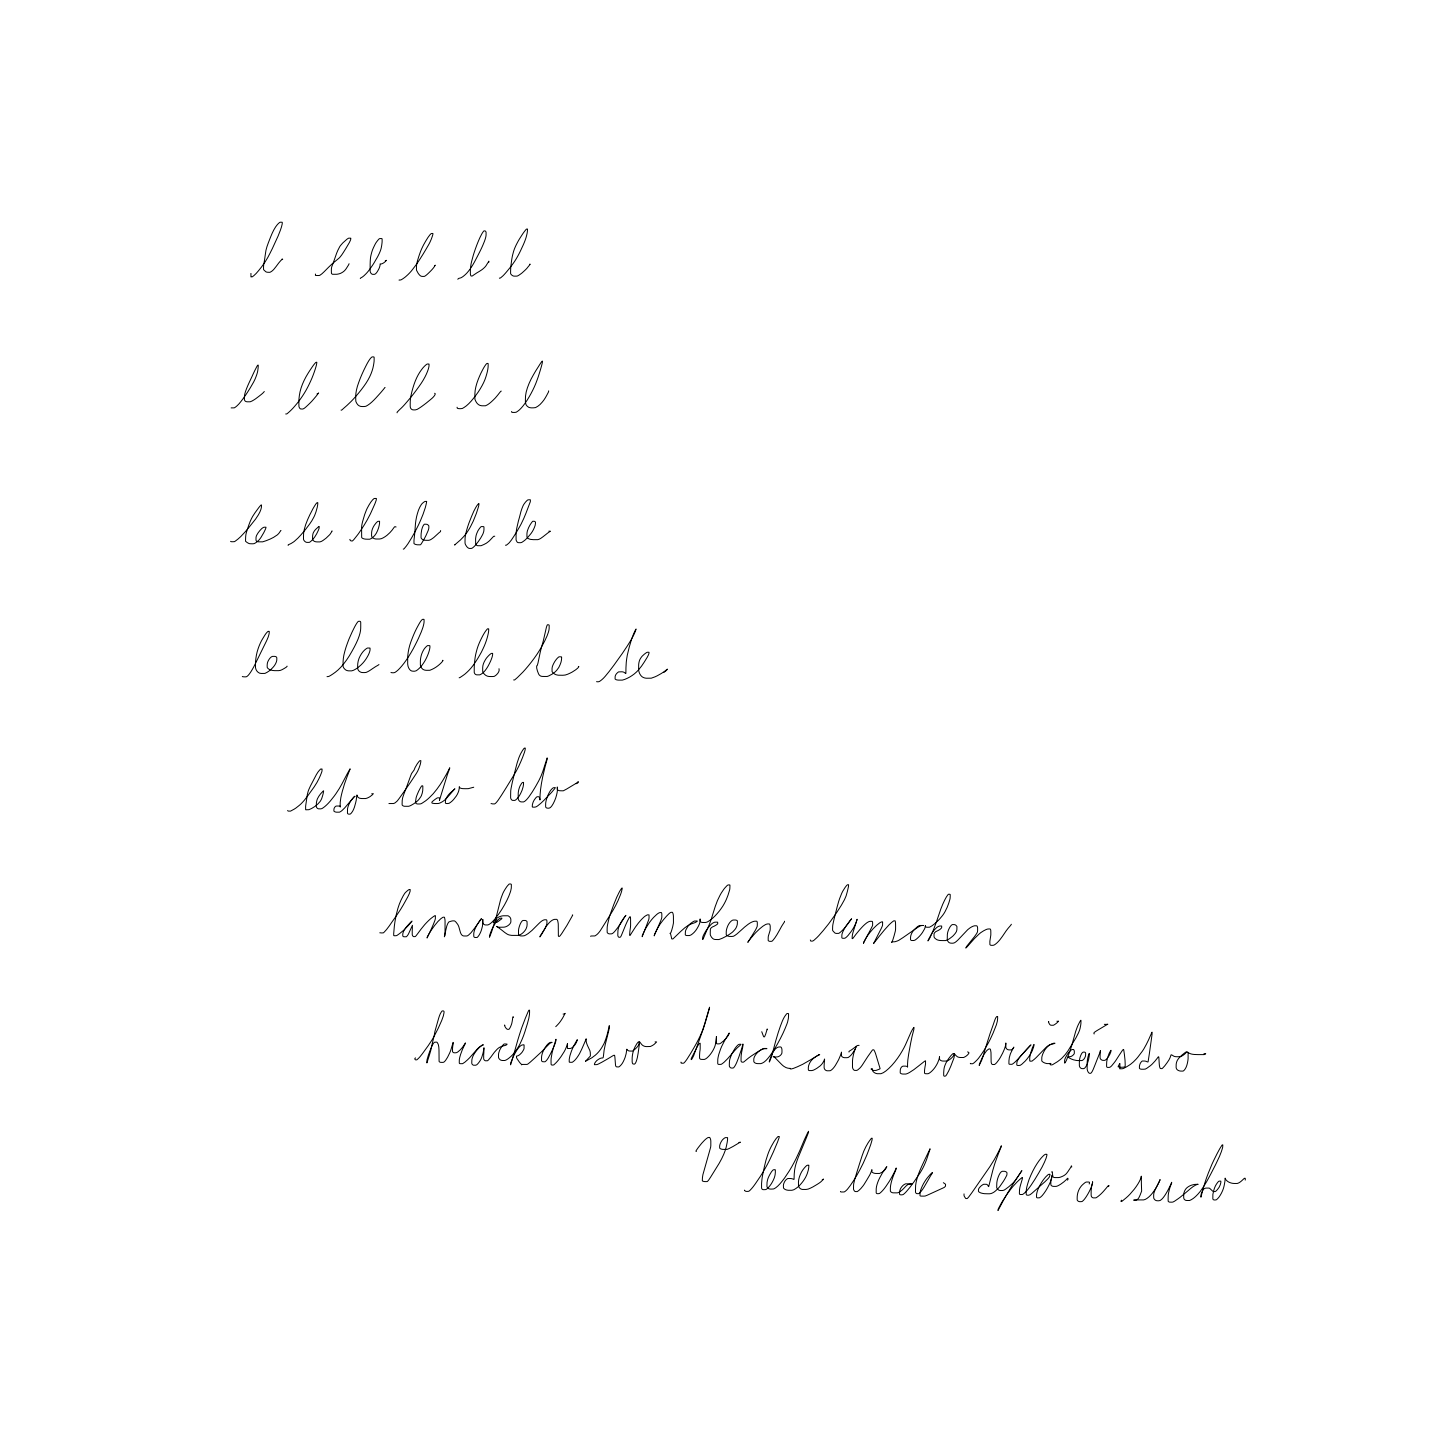 l l l l l l
l l l l l l
le le le le le le
le le le le le se
leto leto leto
lamoken lamoken lamoken
hračkárstvo hračkarstvo hračkárstvo
V lete bude teplo a sucho